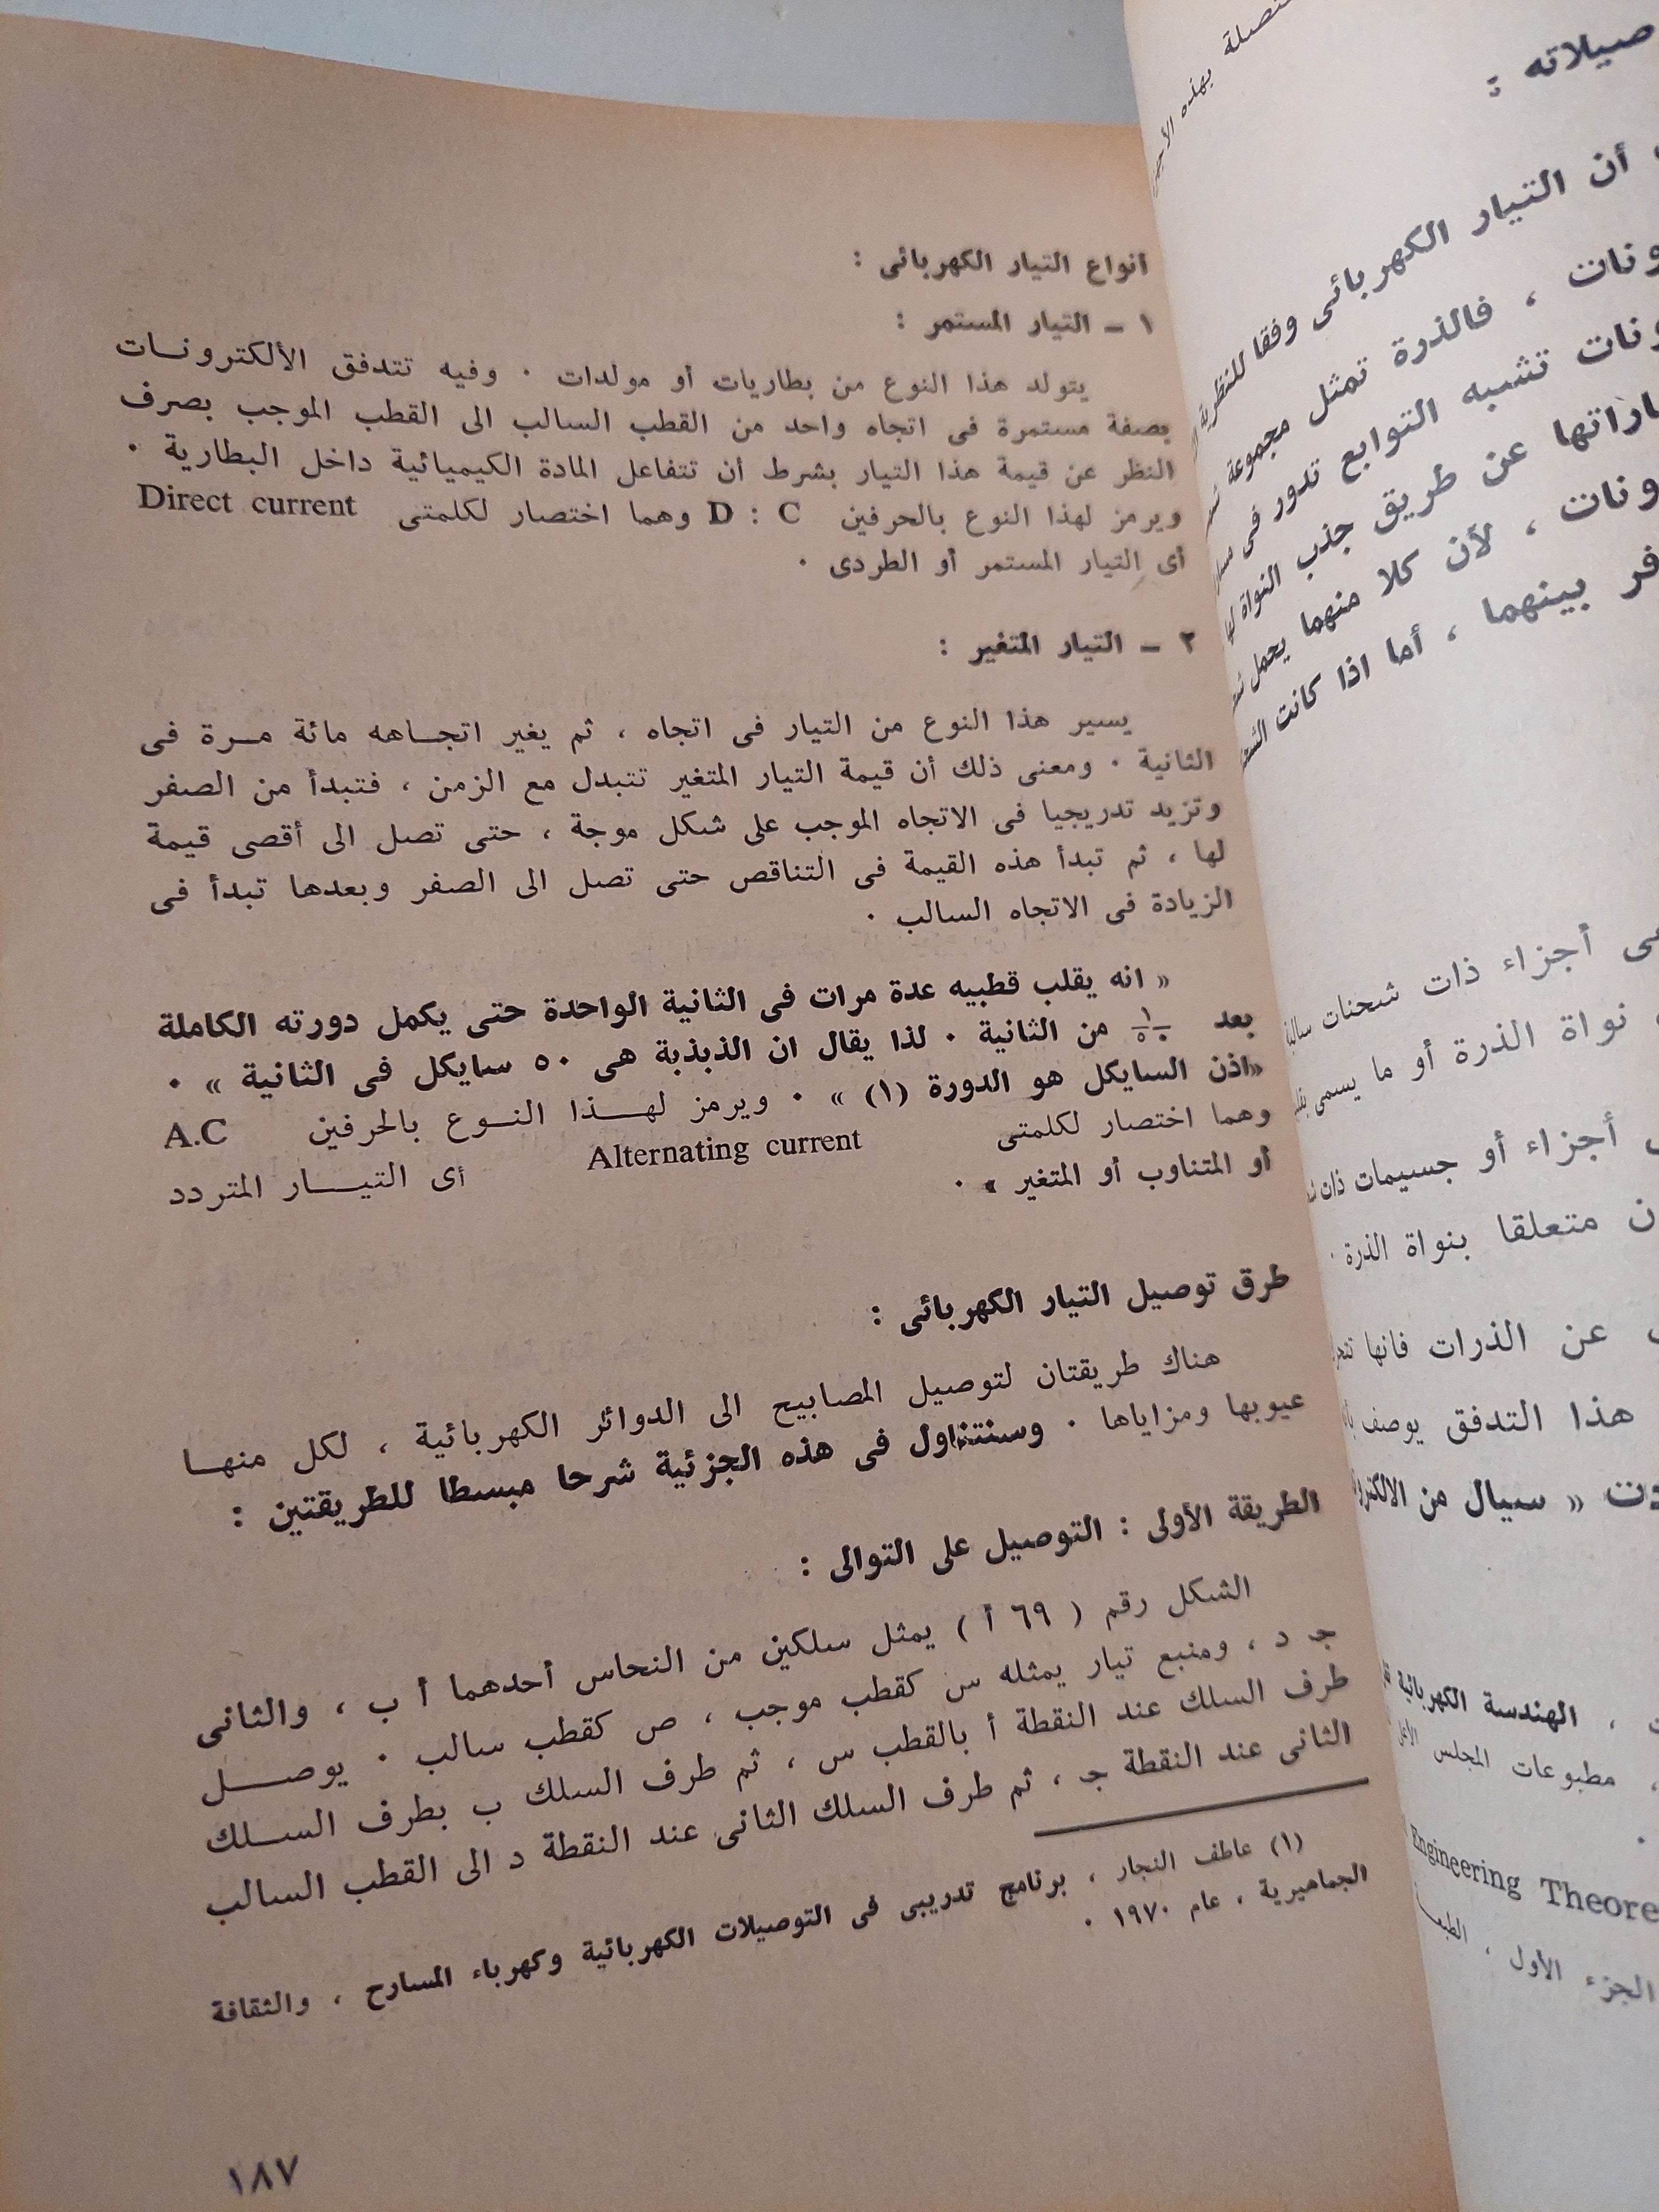 أنواع التيار الكهربائى :
١ ــ التيار المستمر :
يتولد هذا النوع من بطاريات أو مولدات . وفيه تتدفق الألكترونــات
بصفة مستمرة فى اتجاه واحد من القطب السالب الى القطب الموجب بصرف
النظر عن قيمة هذا التيار بشرط أن تتفاعل المادة الكيميائية داخل البطارية .
ويرمز لهذا النوع بالحرفين D : C وهما اختصار لكلمتى Direct current
أى التيار المستمر أو الطردى .
٢ ــ التيار المتغير :
يسير هذا النوع من التيار فى اتجاه ، ثم يغير اتجــاهه مائة مــرة فى
الثانية . ومعنى ذلك أن قيمة التيار المتغير تتبدل مع الزمن ، فتبدأ من الصفر
وتزيد تدريجيا فى الاتجاه الموجب على شكل موجة ، حتى تصل الى أقصى قيمة
لها ، ثم تبدأ هذه القيمة فى التناقص حتى تصل الى الصفر وبعدها تبدأ فى
الزيادة فى الاتجاه السالب .
« انه يقلب قطبيه عدة مرات فى الثانية الواحدة حتى يكمل دورته الكاملة
بعد ١/٥٠ من الثانية . لذا يقال ان الذبذبة هى ٥٠ سايكل فى الثانية » .
«اذن السايكل هو الدورة (١) » . ويرمز لهــــذا النــوع بالحرفين A.C
وهما اختصار لكلمتى Alternating current أى التيـــــار المتردد
أو المتناوب أو المتغير » .
طرق توصيل التيار الكهربائى :
هناك طريقتان لتوصيل المصابيح الى الدوائر الكهربائية ، لكل منهــا
عيوبها ومزاياها . وسنتناول فى هذه الجزئية شرحا مبسطا للطريقتين :
الطريقة الأولى : التوصيل على التوالى :
الشكل رقم ( ٦٩ أ ) يمثل سلكين من النحاس أحدهما أ ب ، والثانى
جـ د ، ومنبع تيار يمثله س كقطب موجب ، ص كقطب سالب . يوصـــــل
طرف السلك عند النقطة أ بالقطب س ، ثم طرف السلك ب بطرف الســـلك
الثانى عند النقطة جـ ، ثم طرف السلك الثانى عند النقطة د الى القطب السالب
(١) عاطف النجار ، برنامج تدريبى فى التوصيلات الكهربائية وكهرباء المسارح ، والثقافة
الجماهيرية ، عام ١٩٧٠ .
١٨٧
صيلاته :
أن التيار الكهربائى وفقا للنظرية
ونات ، فالذرة تمثل مجموعة
ونات تشبه التوابع تدور فى
اراتها عن طريق جذب النواة لها
ونات ، لأن كلا منهما يحمل
فر بينهما ، أما اذا كانت
أجزاء ذات شحنات سالبة
نواة الذرة أو ما يسمى
أجزاء أو جسيمات ذات
ن متعلقا بنواة الذرة .
عن الذرات فانها
هذا التدفق يوصف
« سيال من
، الهندسة الكهربائية
، مطبوعات المجلس
Engineering Theore
الجزء الأول ،